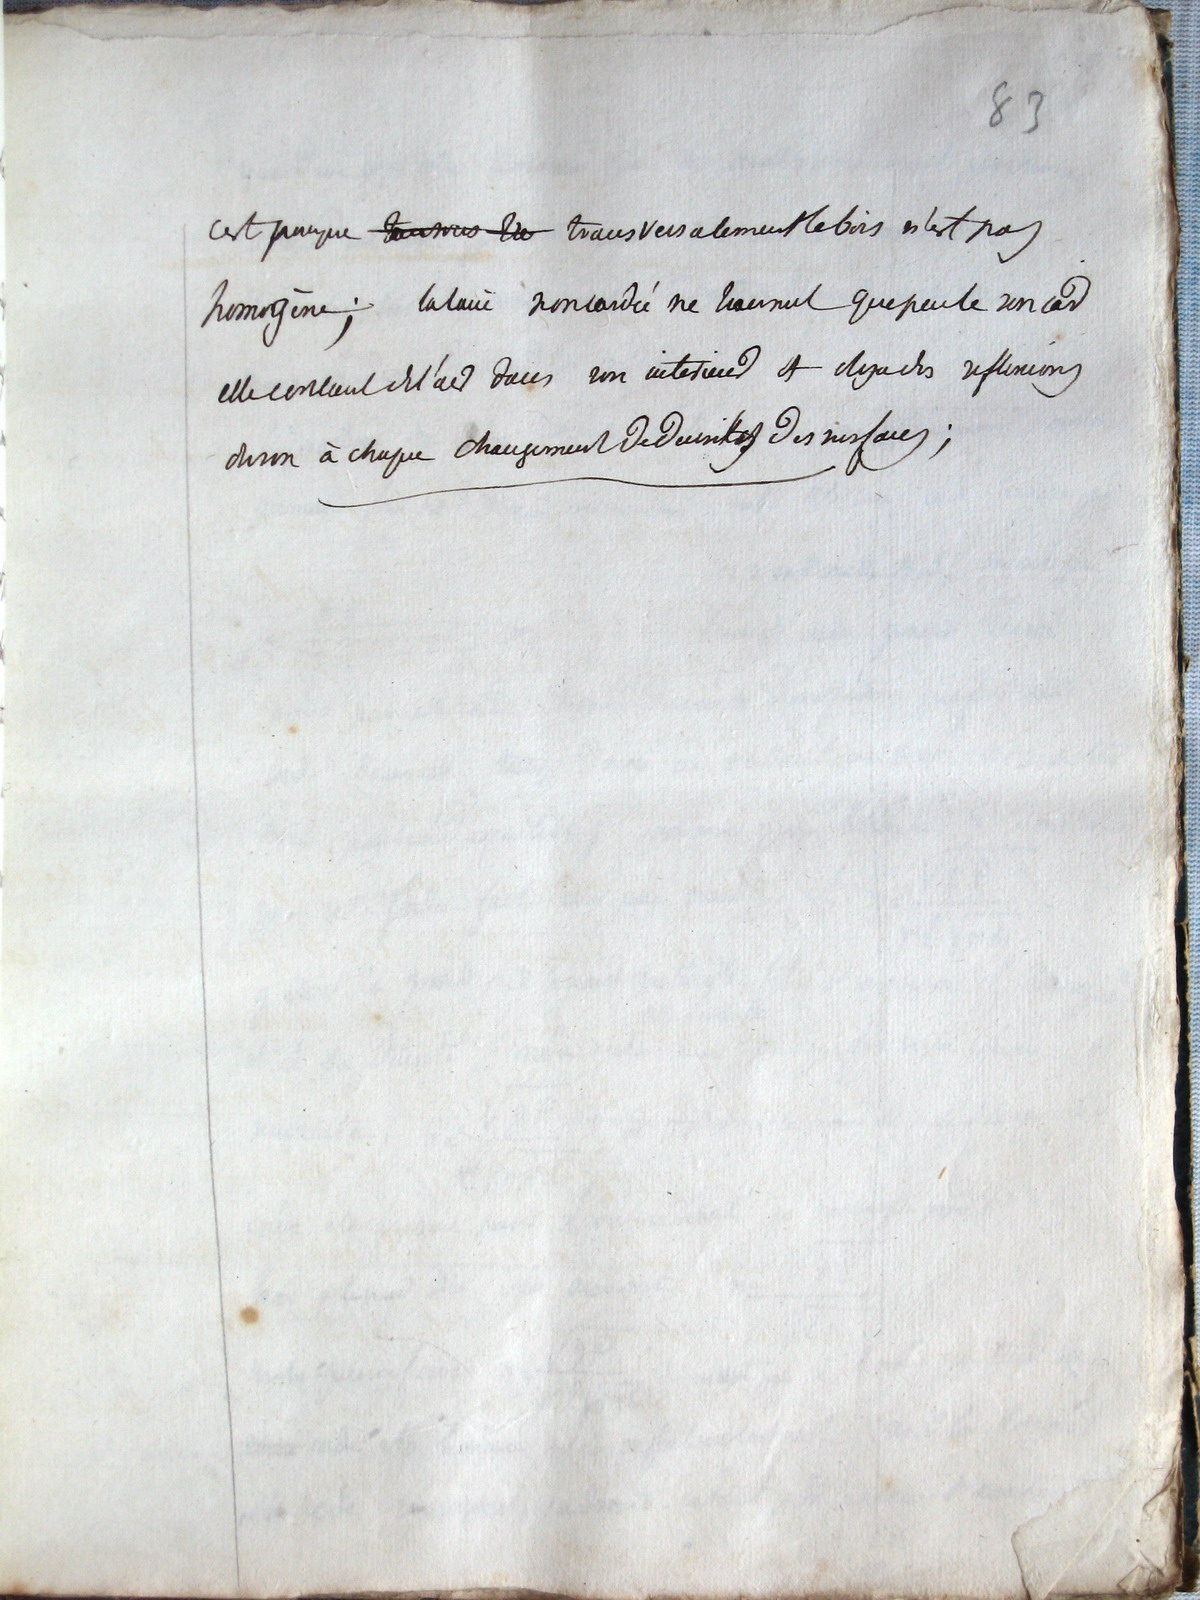 83
c'est parcque transversalement le bois n'est pas
homogène; la laine non cardée ne transmet que peu le son car
elle contient de l'air dans son interieur et il y a des reflexions
du son à chaque changement de densités des surfaces;